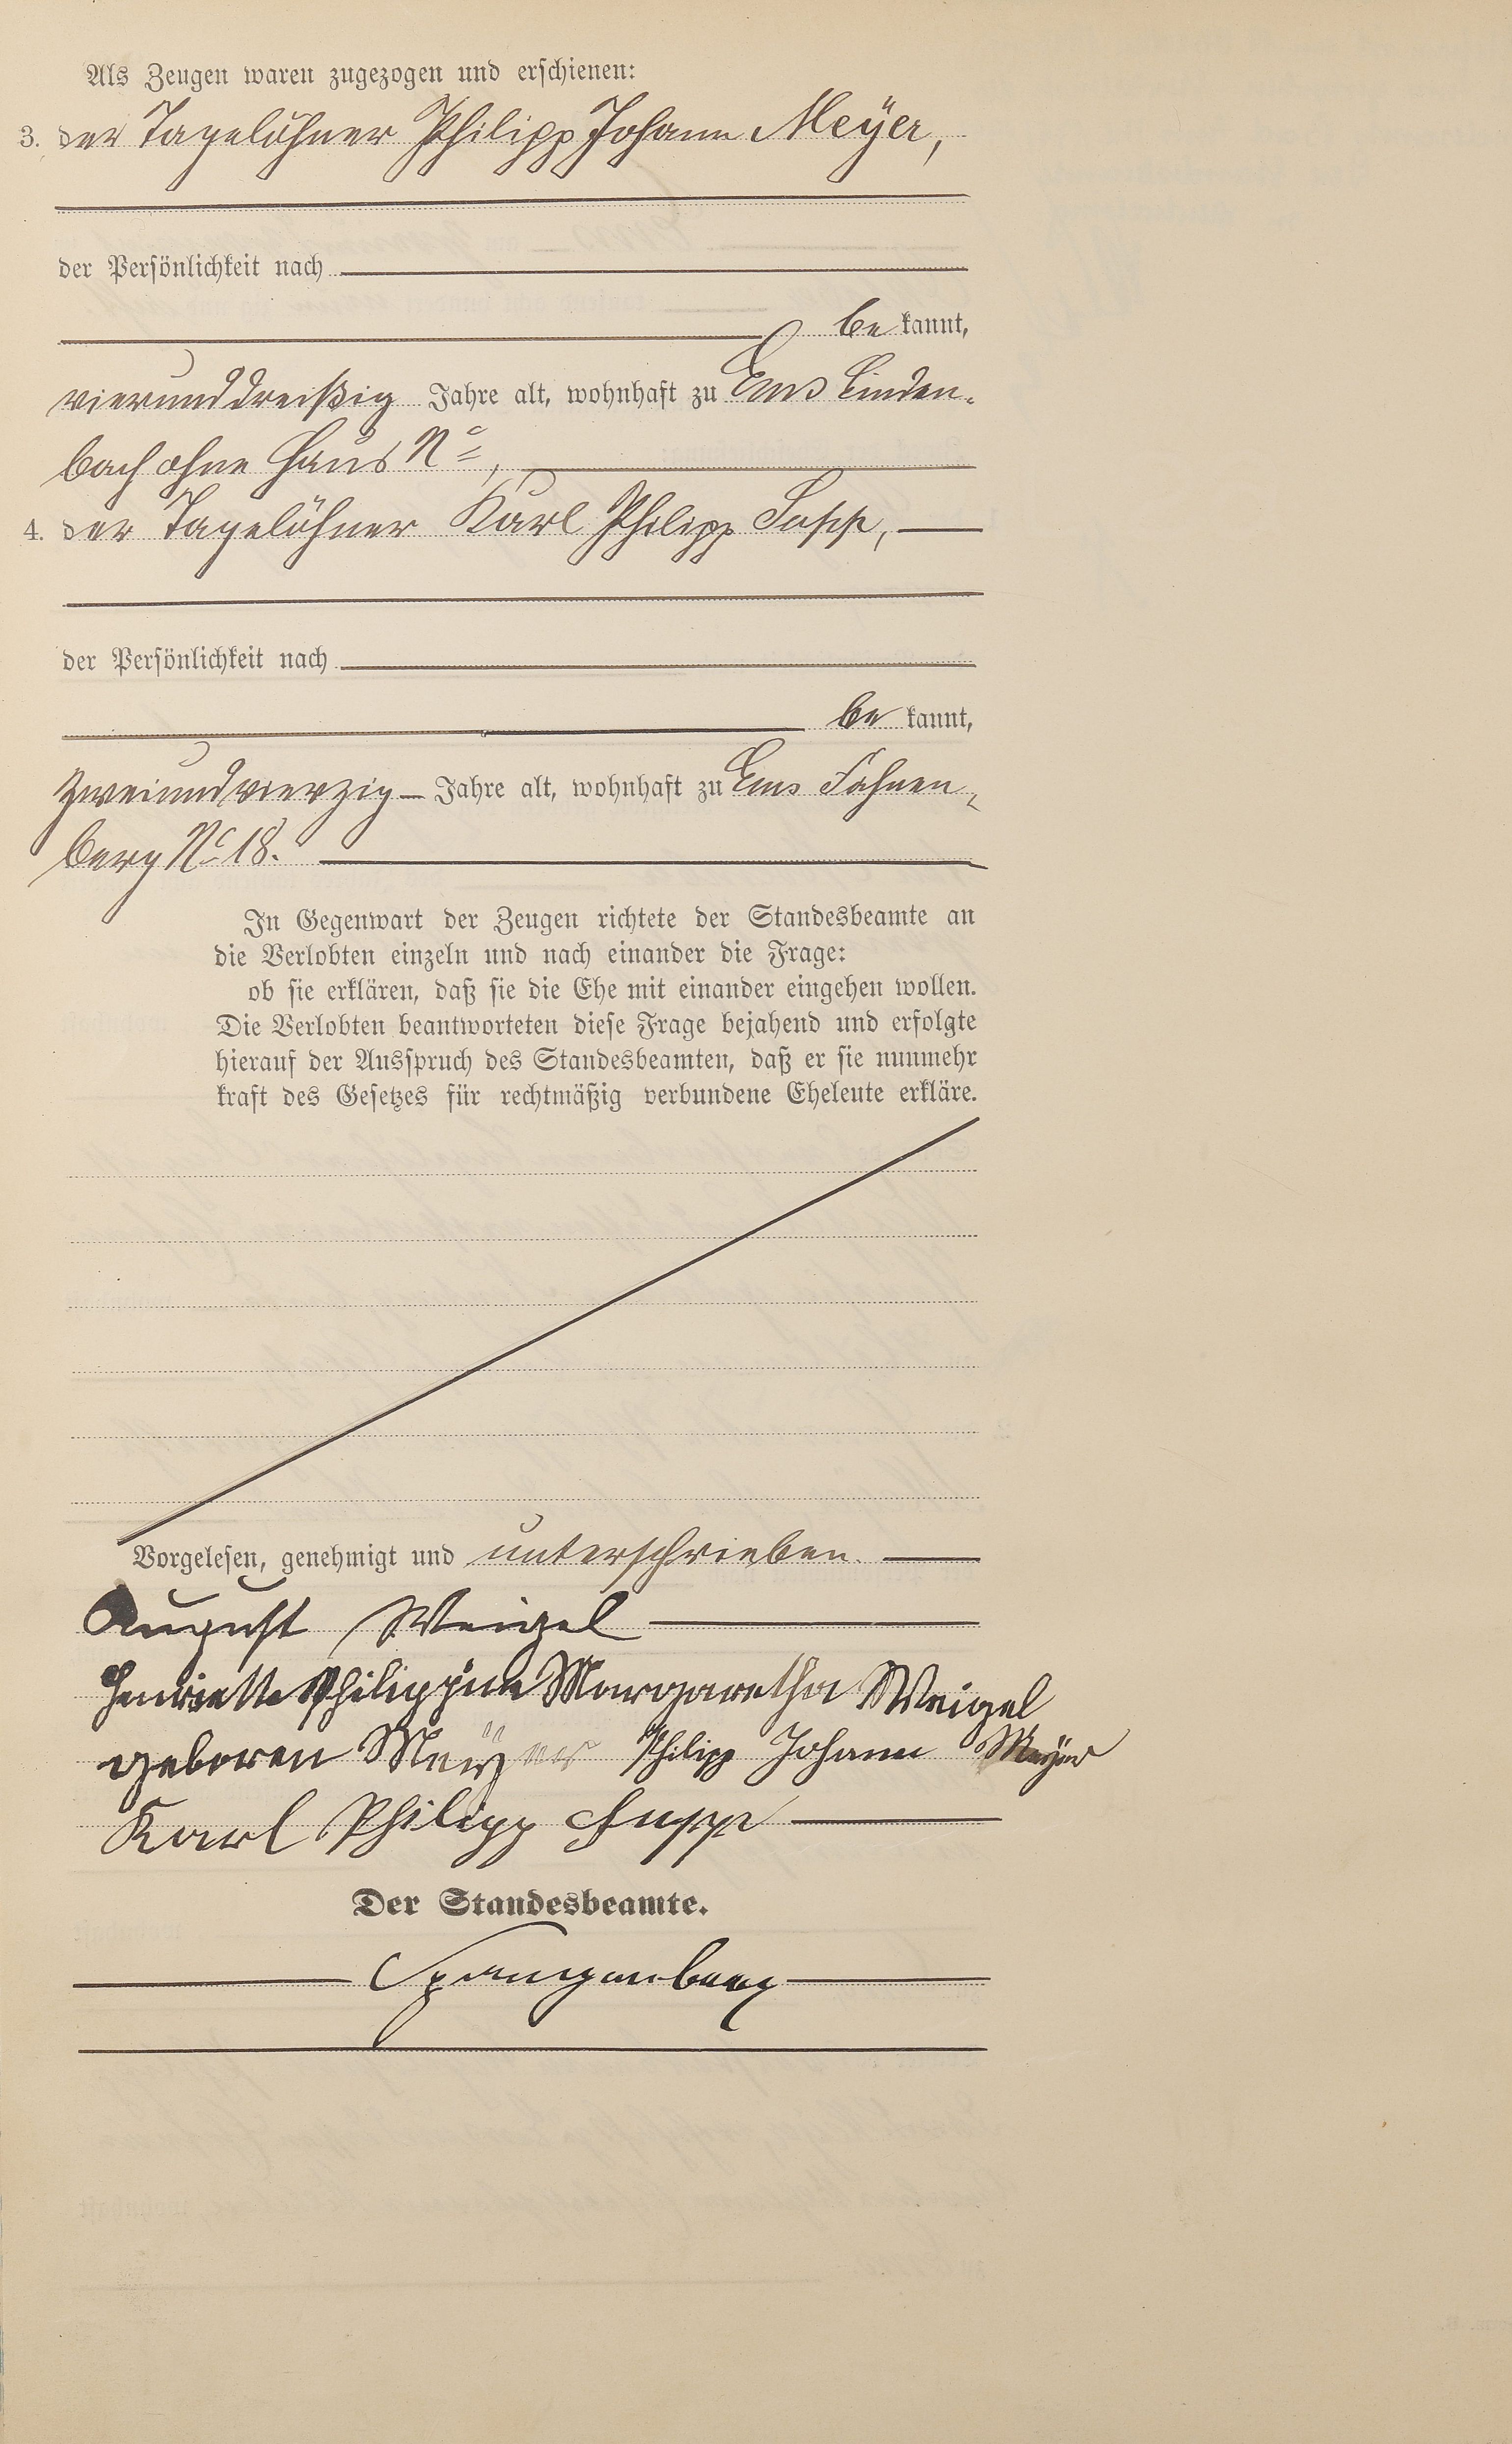 Als Zeugen waren zugezogen und erschienen:
3. der Tagelöhner Philipp Johann Meÿer,
der Persönlichkeit nach
be kannt,
vierunddreißig Jahre alt, wohnhaft zu Ems Linden-
bach ohne Haus No,
4. der Tagelöhner Karl Philipp
der Persönlichkeit nach
be kannt,
zweiundvierzig Jahre alt, wohnhaft zu Ems Fahnen-
berg No 18.
In Gegenwart der Zeugen richtete der Standesbeamte an
die Verlobten einzeln und nach einander die Frage:
ob sie erklären, daß sie die Ehe mit einander eingehen wollen.
Die Verlobten beantworteten diese Frage bejahend und erfolgte
hierauf der Ausspruch des Standesbeamten, daß er sie nunmehr
kraft des Gesetzes für rechtmäßig verbundene Eheleute erkläre.
Vorgelesen, genehmigt und unterschrieben.
August Weigel
Henriette Philippine Margaretha Weigel
geboren Meÿer Philipp Johann Meÿer
Karl Philipp
Der Standesbeamte.
Spangenberg